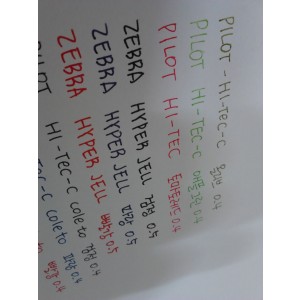 PILOT - HI-TEC-C 0.4
PILOT HI-TEC-C 애플그린 0.4
PILOT HI-TEC 토마토레드 0.4
ZEBRA HYPER JELL 검정 0.5
ZEBRA HYPER JELL 파랑 0.5
ZEBRA HYPER JELL 빨강 0.5
PILOT HI-TEC-C coleto 검정 0.4
TEC-C coleto 파랑 0.4
빨강 0.4